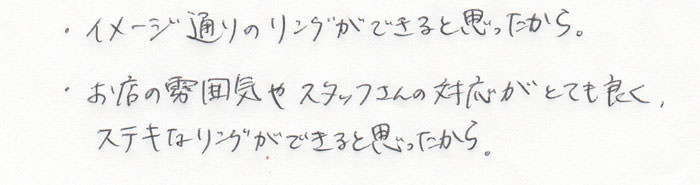 ・イメージ通りのリングができると思ったから。
・お店の雰囲気やスタッフさんの対応がとても良く、
ステキなリングができると思ったから。